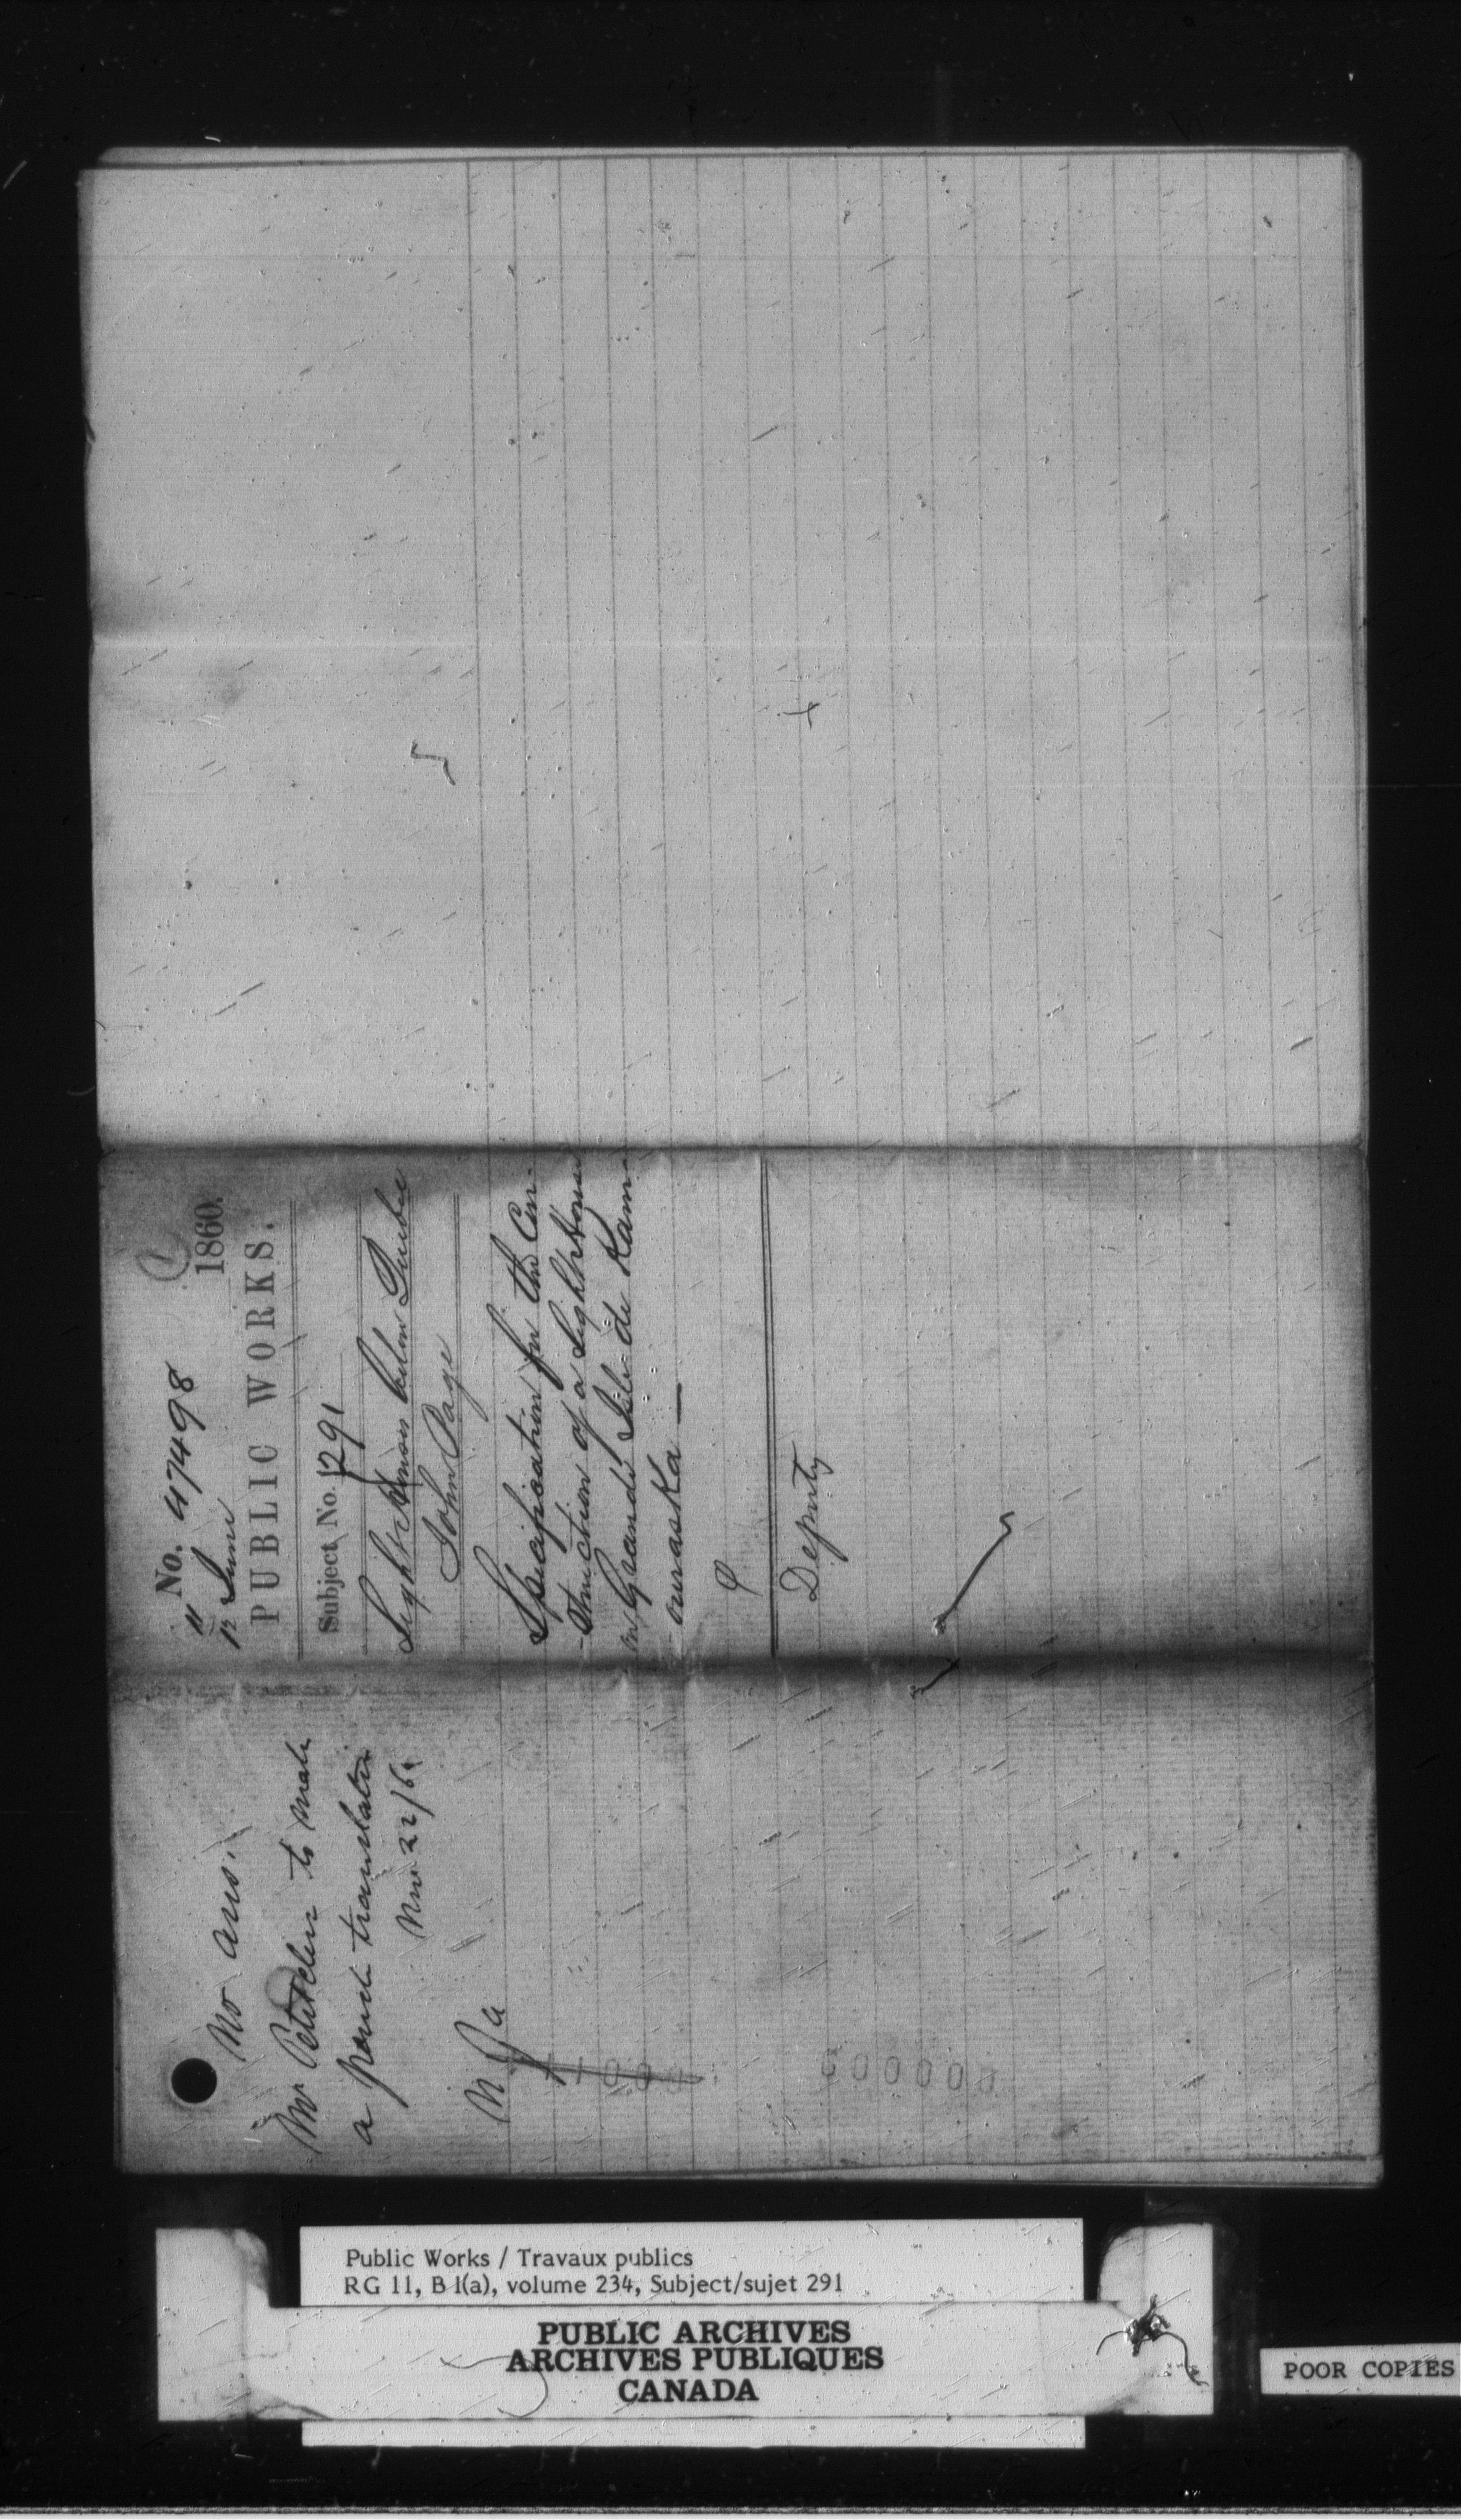 No. 47498
11
12 June 1860.
PUBLIC WORKS.
Subject, No. 291
Lights & below Quebec
John Page
Specification for the Con-
-struction of a Lighthouse
on Grande Isle de Kam-
ouraska —
Deputy
No ans.
Mr Petitclerc to make
a french translation
22/6
Public Works / Travaux publics
RG 11, B 1(a), volume 234, Subject/sujet 291
PUBLIC ARCHIVES
ARCHIVES PUBLIQUES
CANADA
POOR COPIES